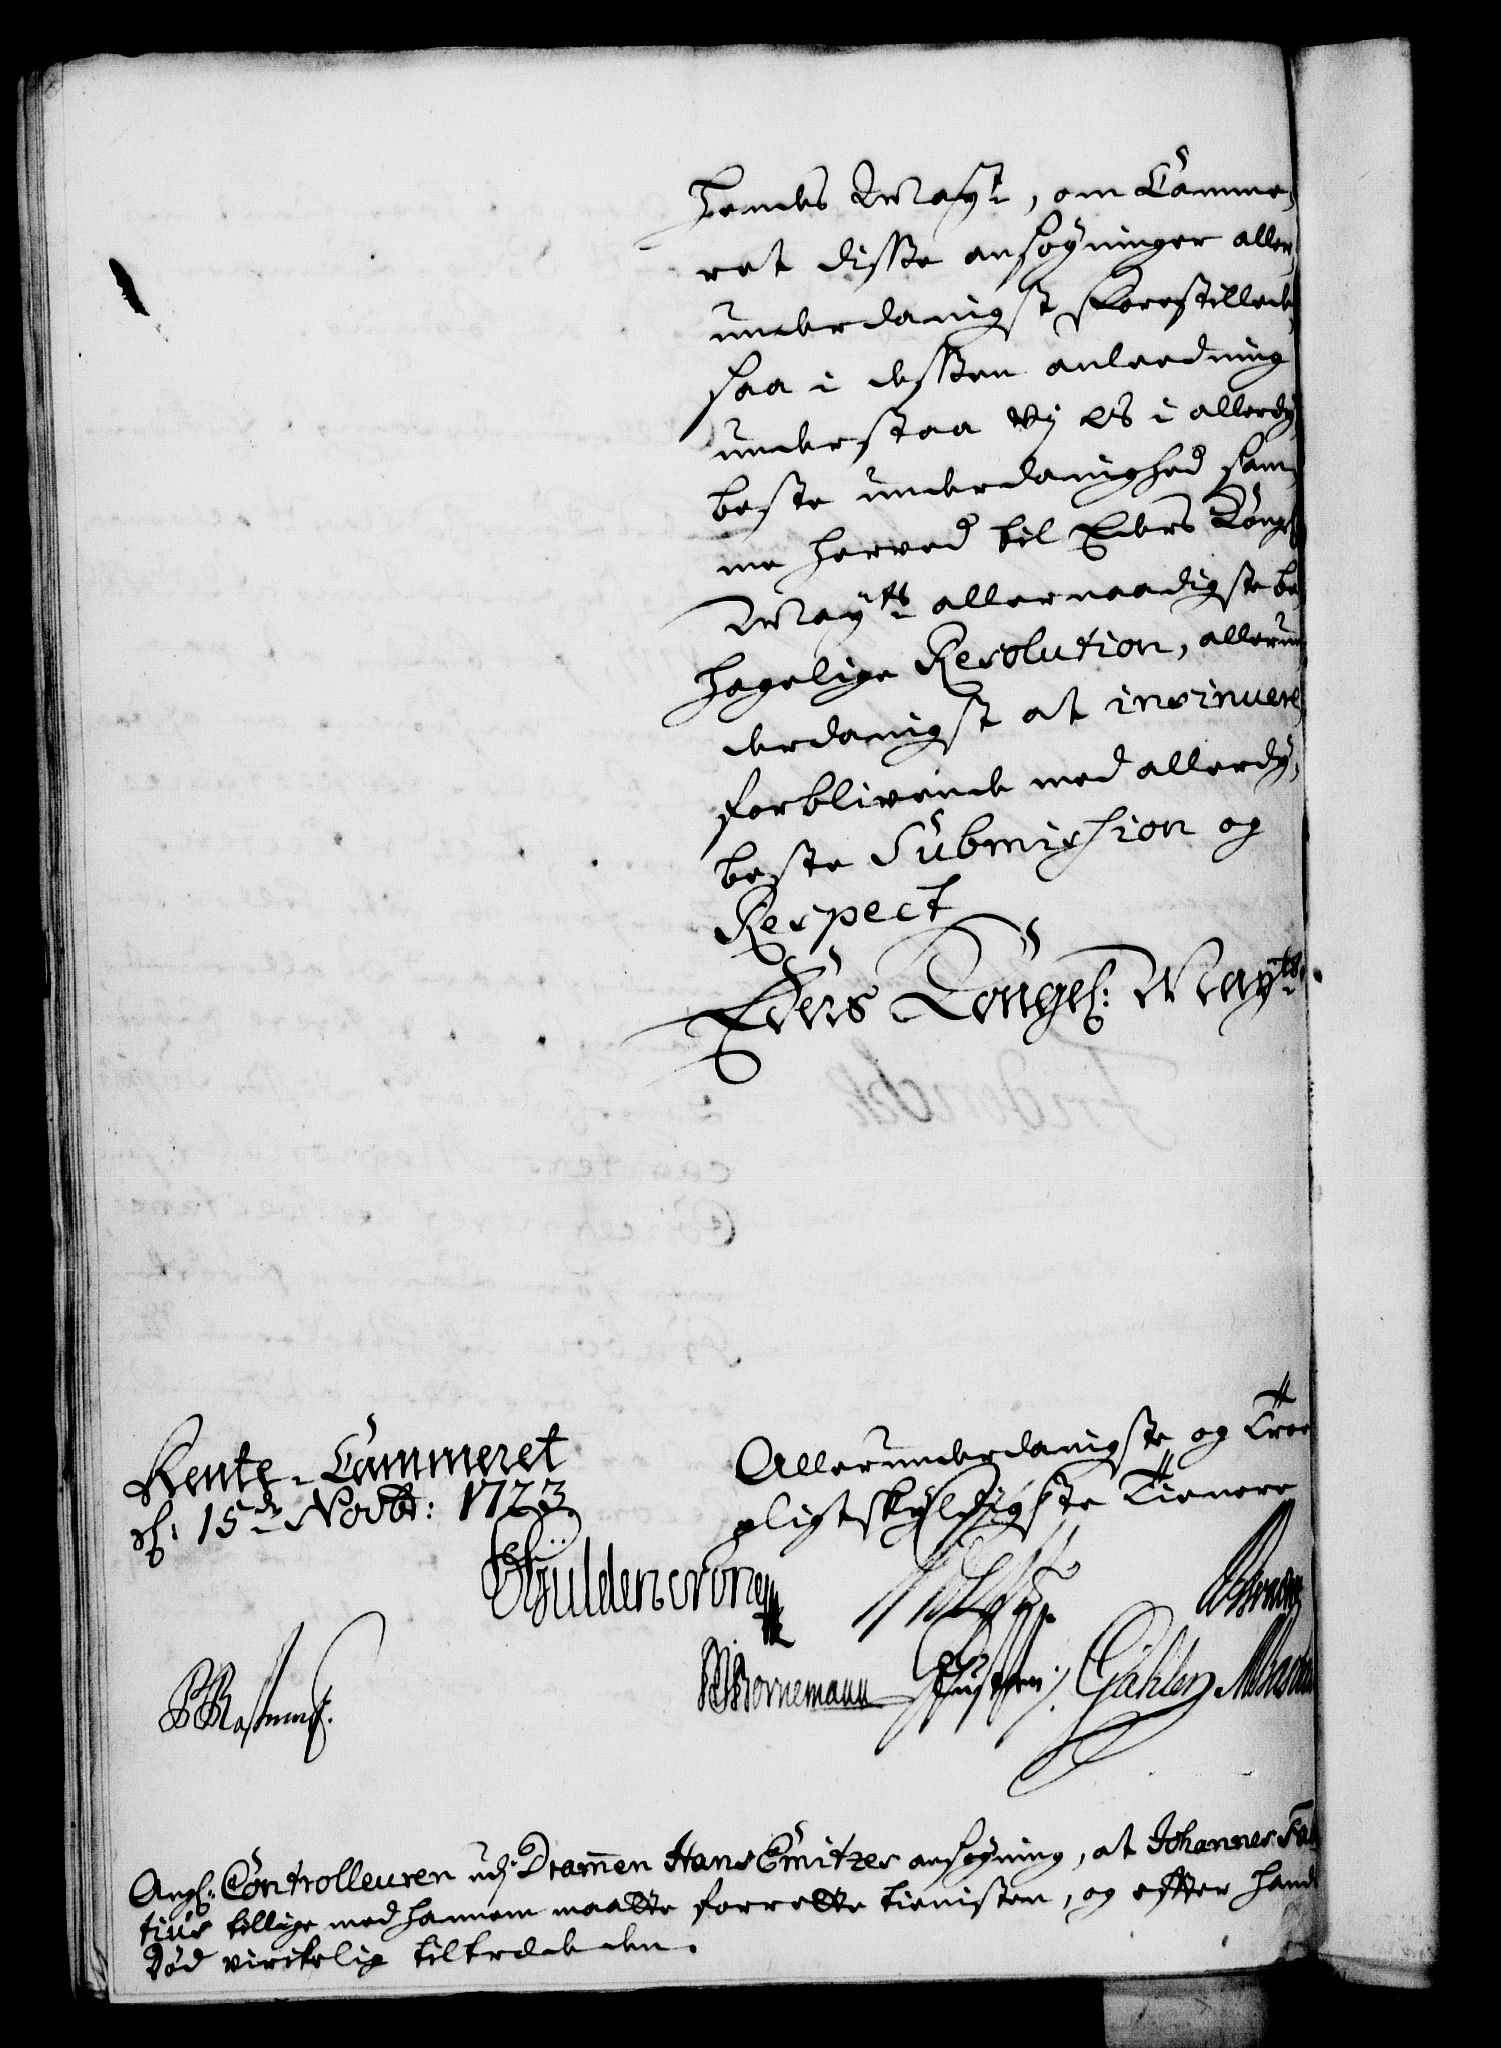 hendes Mayt, om Camme,
ret disse ansøgninger aller,
underdanigst forestillede,
saa i dessen anleedning
understaa Vj os i allerdy,
beste underdanighed sam,
me herved til Eders Kongl
Mayts allernaadigste be
hagelige Resolution, allerun
derdanigst at insinuere,
forblivende med allerdy,
beste Submission og
Respect
Eders Kongel: Mayts
Rente-Cammeret
d: 15de Novbr: 1723
Allerunderdanigste og Troe
pligtskyldigste Tienere
Güldencrone
Bornemann Gähler
Angl: Controlleuren udj Dramen Hans Smitzes ansøgning, at Johannes
tius tillige med hannem maatte forrette tienisten, og effter hans
Død virkelig tiltræde den.